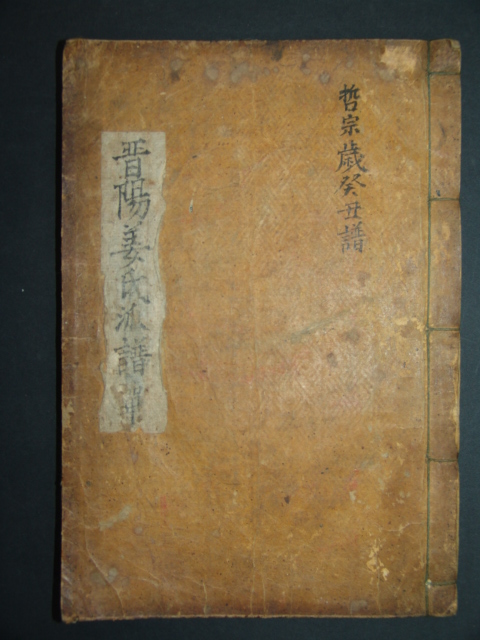 哲宗歲癸丑譜
晋陽姜氏派譜單